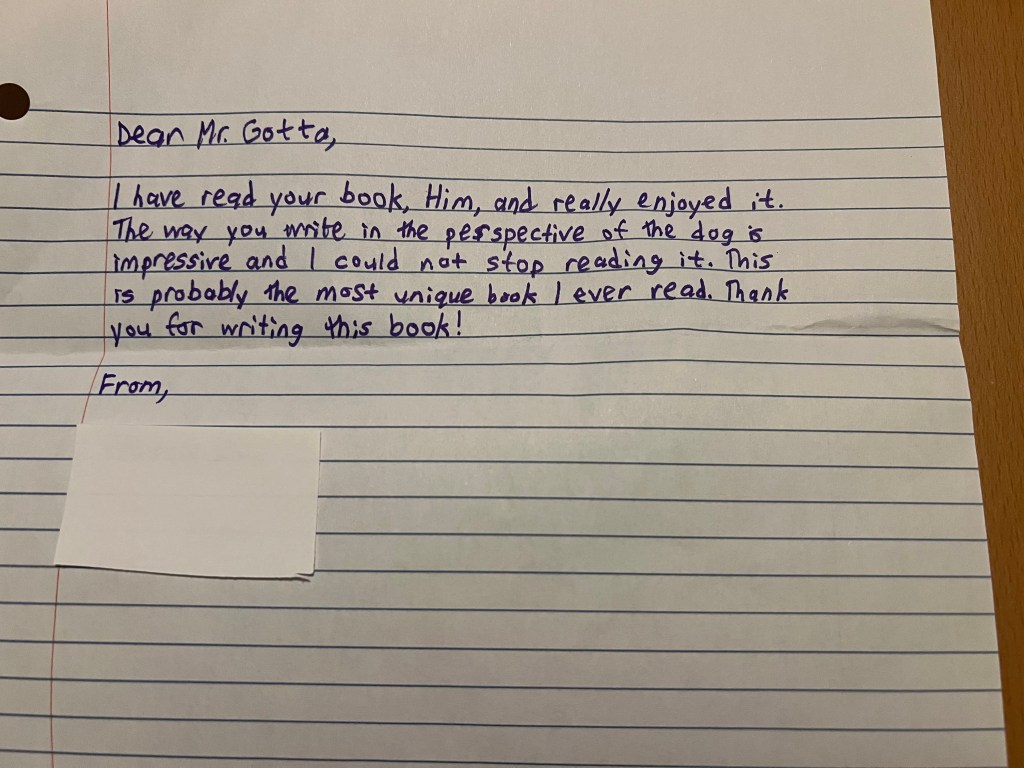 Dear Mr. Gotta,
I have read your book, Him, and really enjoyed it.
The way you write in the perspective of the dog is
impressive and I could not stop reading it. This
is probably the most unique book I ever read. Thank
you for writing this book!
From,